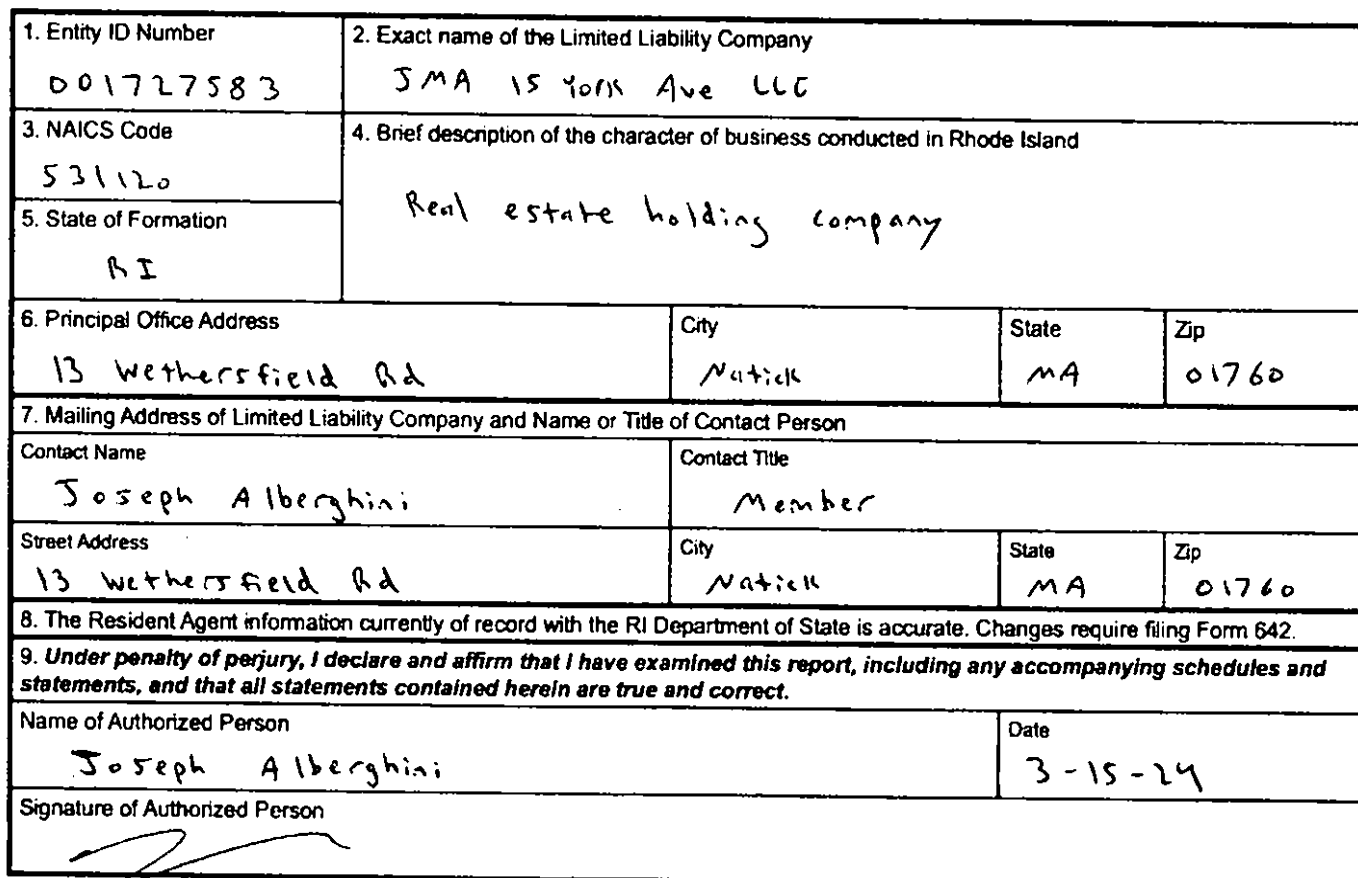 1. Entity ID Number
001727583
2. Exact name of the Limited Liability Company
JMA 15 York Ave LLC
3. NAICS Code
531120
4. Brief description of the character of business conducted in Rhode Island
Real estate holding company
5. State of Formation
RI
6. Principal Office Address
13 Wethersfield Rd
City
Natick
State
MA
Zip
01760
7. Mailing Address of Limited Liability Company and Name or Title of Contact Person
Contact Name
Joseph Alberghini
Contact Title
Member
Street Address
13 Wethersfield Rd
City
Natick
State
MA
Zip
01760
8. The Resident Agent information currently of record with the RI Department of State is accurate. Changes require filing Form 642.
9. Under penalty of perjury, I declare and affirm that I have examined this report, including any accompanying schedules and
statements, and that all statements contained herein are true and correct.
Name of Authorized Person
Joseph Alberghini
Date
3-15-24
Signature of Authorized Person